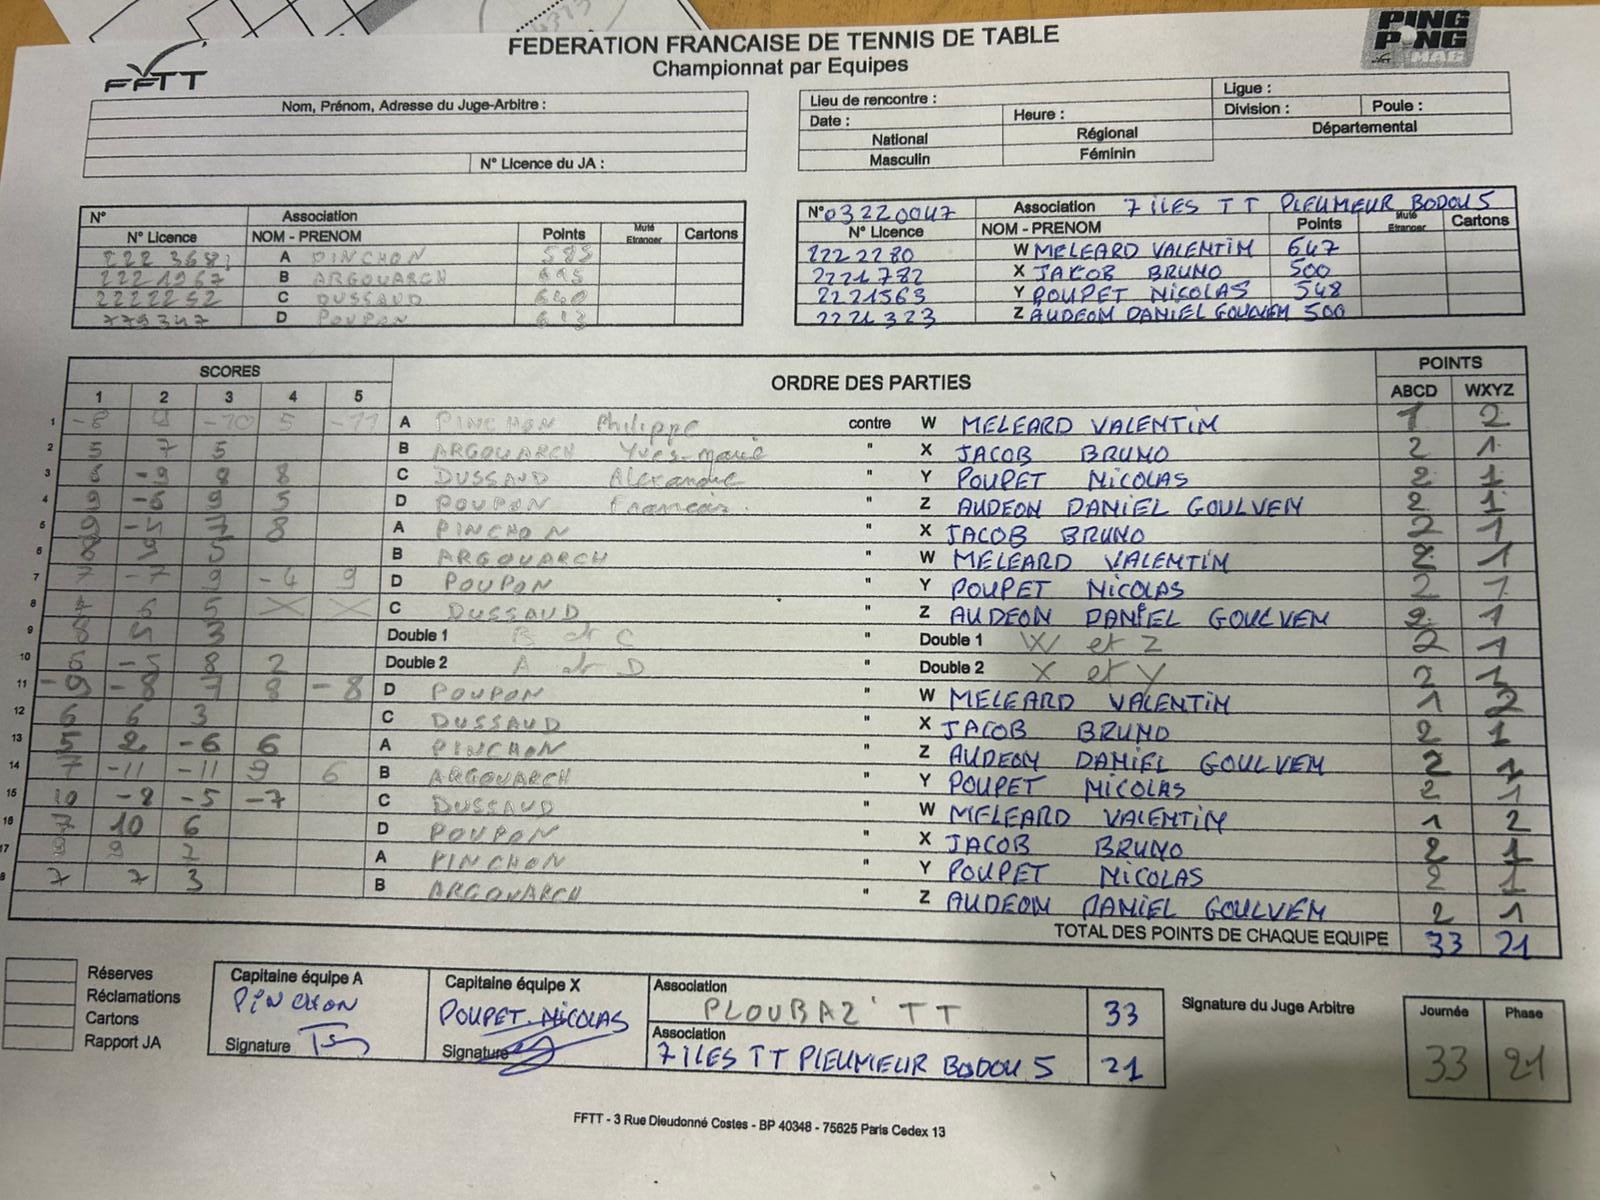 FEDERATION FRANCAISE DE TENNIS DE TABLE
Championnat par Equipes
FFTT
PING PONG MAG
Nom, Prénom, Adresse du Juge-Arbitre :
N° Licence du JA :
Lieu de rencontre : Ligue :
Date : Heure : Division : Poule :
National Régional Départemental
Masculin Féminin
N° Association
N° Licence NOM - PRENOM Points Muté Etranger Cartons
222 3681 A PINCHON 583
2221967 B ARGOUARCH
2222252 C DUSSAUD 640
779347 D POUPON 613
N° 03220047 Association 7 ILES TT PLEUMEUR BODOU 5
N° Licence NOM - PRENOM Points Muté Etranger Cartons
222 2280 W MELEARD VALENTIN 647
2221782 X JACOB BRUNO 500
2221563 Y POUPET NICOLAS 548
2221323 Z AUDEON DANIEL GOULVEN 500
SCORES ORDRE DES PARTIES POINTS
1 2 3 4 5 ABCD WXYZ
1 -8 -10 5 -11 A PINCHON Philippe contre W MELEARD VALENTIN 1 2
2 5 7 5 B ARGOUARCH Yves-marie " X JACOB BRUNO 2 1
3 6 -9 8 8 C DUSSAUD Alexandre " Y POUPET NICOLAS 2 1
4 9 -6 9 5 D POUPON " Z AUDEON DANIEL GOULVEN 2 1
5 9 -5 7 8 A PINCHON " X JACOB BRUNO 2 1
6 8 9 5 B ARGOUARCH " W MELEARD VALENTIN 2 1
7 7 -7 9 -4 9 D POUPON " Y POUPET NICOLAS 2 1
8 6 5 X X C DUSSAUD " Z AUDEON DANIEL GOULVEN 2 1
9 3 Double 1 B et C " Double 1 W et Z 2 1
10 6 -5 8 2 Double 2 A et D " Double 2 X et Y 2 1
11 -9 -8 7 8 -8 D POUPON " W MELEARD VALENTIN 1 2
12 6 6 3 C DUSSAUD " X JACOB BRUNO 2 1
13 5 2 -6 6 A PINCHON " Z AUDEON DANIEL GOULVEN 2 1
14 7 -11 -11 9 6 B ARGOUARCH " Y POUPET NICOLAS 2 1
15 10 -8 -5 -7 C DUSSAUD " W MELEARD VALENTIN 1 2
16 7 10 6 D POUPON " X JACOB BRUNO 2 1
17 9 9 7 A PINCHON " Y POUPET NICOLAS 2 1
8 7 7 3 B ARGOUARCH " Z AUDEON DANIEL GOULVEN 2 1
TOTAL DES POINTS DE CHAQUE EQUIPE 33 21
Réserves
Réclamations
Cartons
Rapport JA
Capitaine équipe A
PINCHON
Signature
Capitaine équipe X
POUPET NICOLAS
Signature
Association
PLOUBAZ' TT 33
Association
7 ILES TT PLEUMEUR BODOU 5 21
Signature du Juge Arbitre
Journée Phase
33 21
FFTT - 3 Rue Dieudonné Costes - BP 40348 - 75625 Paris Cedex 13